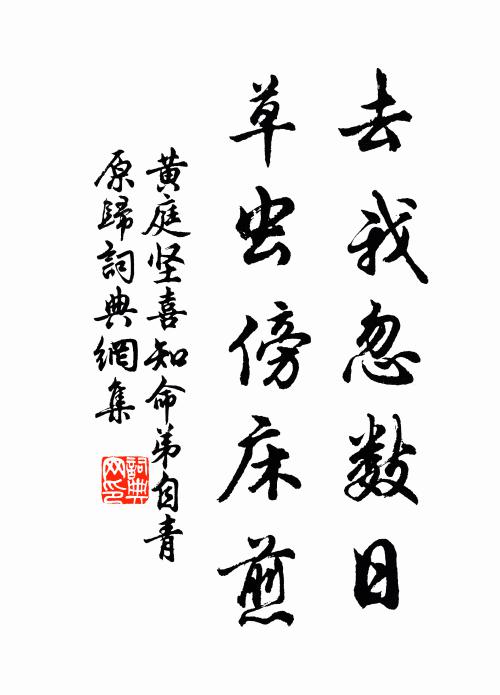 去我忽数日
草虫傍床煎
黄庭坚喜知命弟自青
原歸詞典網集
詞典网印